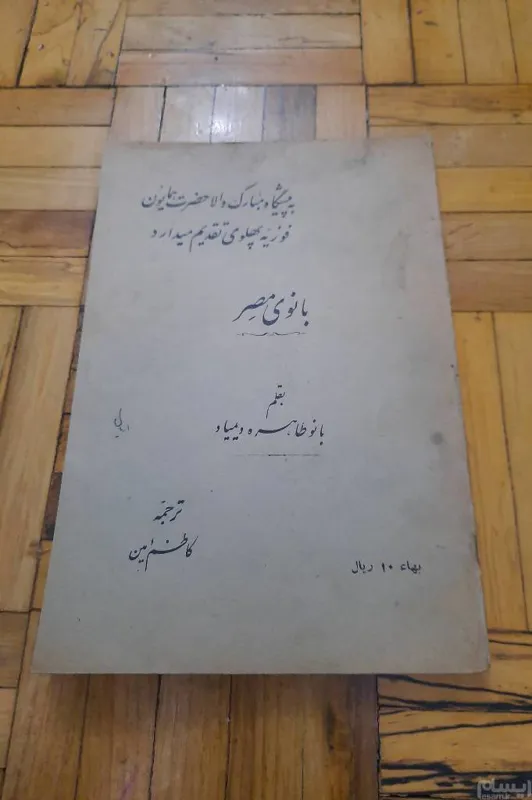 به پیشگاه مبارک والاحضرت همایون
فوزیه پهلوی تقدیم میدارد
بانوی مصر
بقلم
بانو طاهره دیمیاد
ترجمه
کاظم امین
بهاء ۱۰ ریال
ایسام
esam.ir